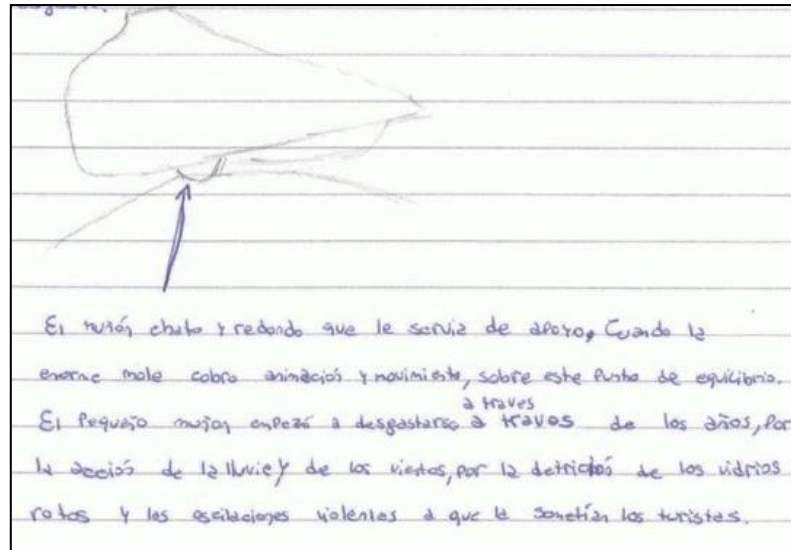 El muñón chato y redondo que le servia de apoyo, Cuando la
enorme mole cobro animación y movimiento, sobre este Punto de equilibrio.
a traves
El Pequeño muñon empezó a desgastarse a traves de los años, Por
la acción de la lluvia y de los vientos, por la detrición de los vidrios
rotos y las oscilaciones violentas a que la sometían los turistas.